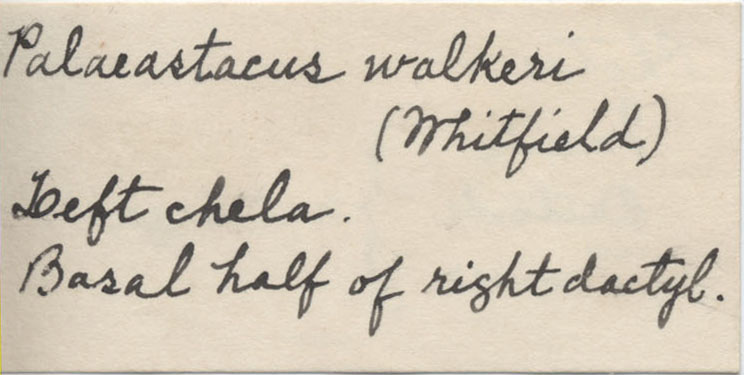 Palaeastacus walkeri
(Whitfield)
Left chela.
Basal half of right dactyl.